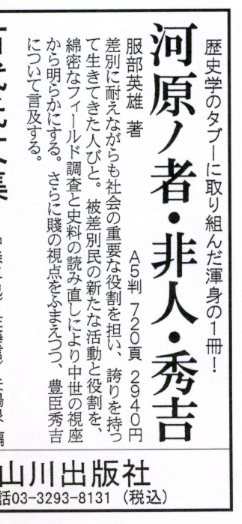 歴史学のタブーに取り組んだ渾身の1冊!
河原ノ者・非人・秀吉
服部英雄 著
A5判 720頁 2940円
差別に耐えながらも社会の重要な役割を担い、誇りを持っ
て生きてきた人びと。被差別民の新たな活動と役割を、
綿密なフィールド調査と史料の読み直しにより中世の視座
から明らかにする。さらに賤の視点をふまえつつ、豊臣秀吉
について言及する。
山川出版社
話03-3293-8131 (税込)